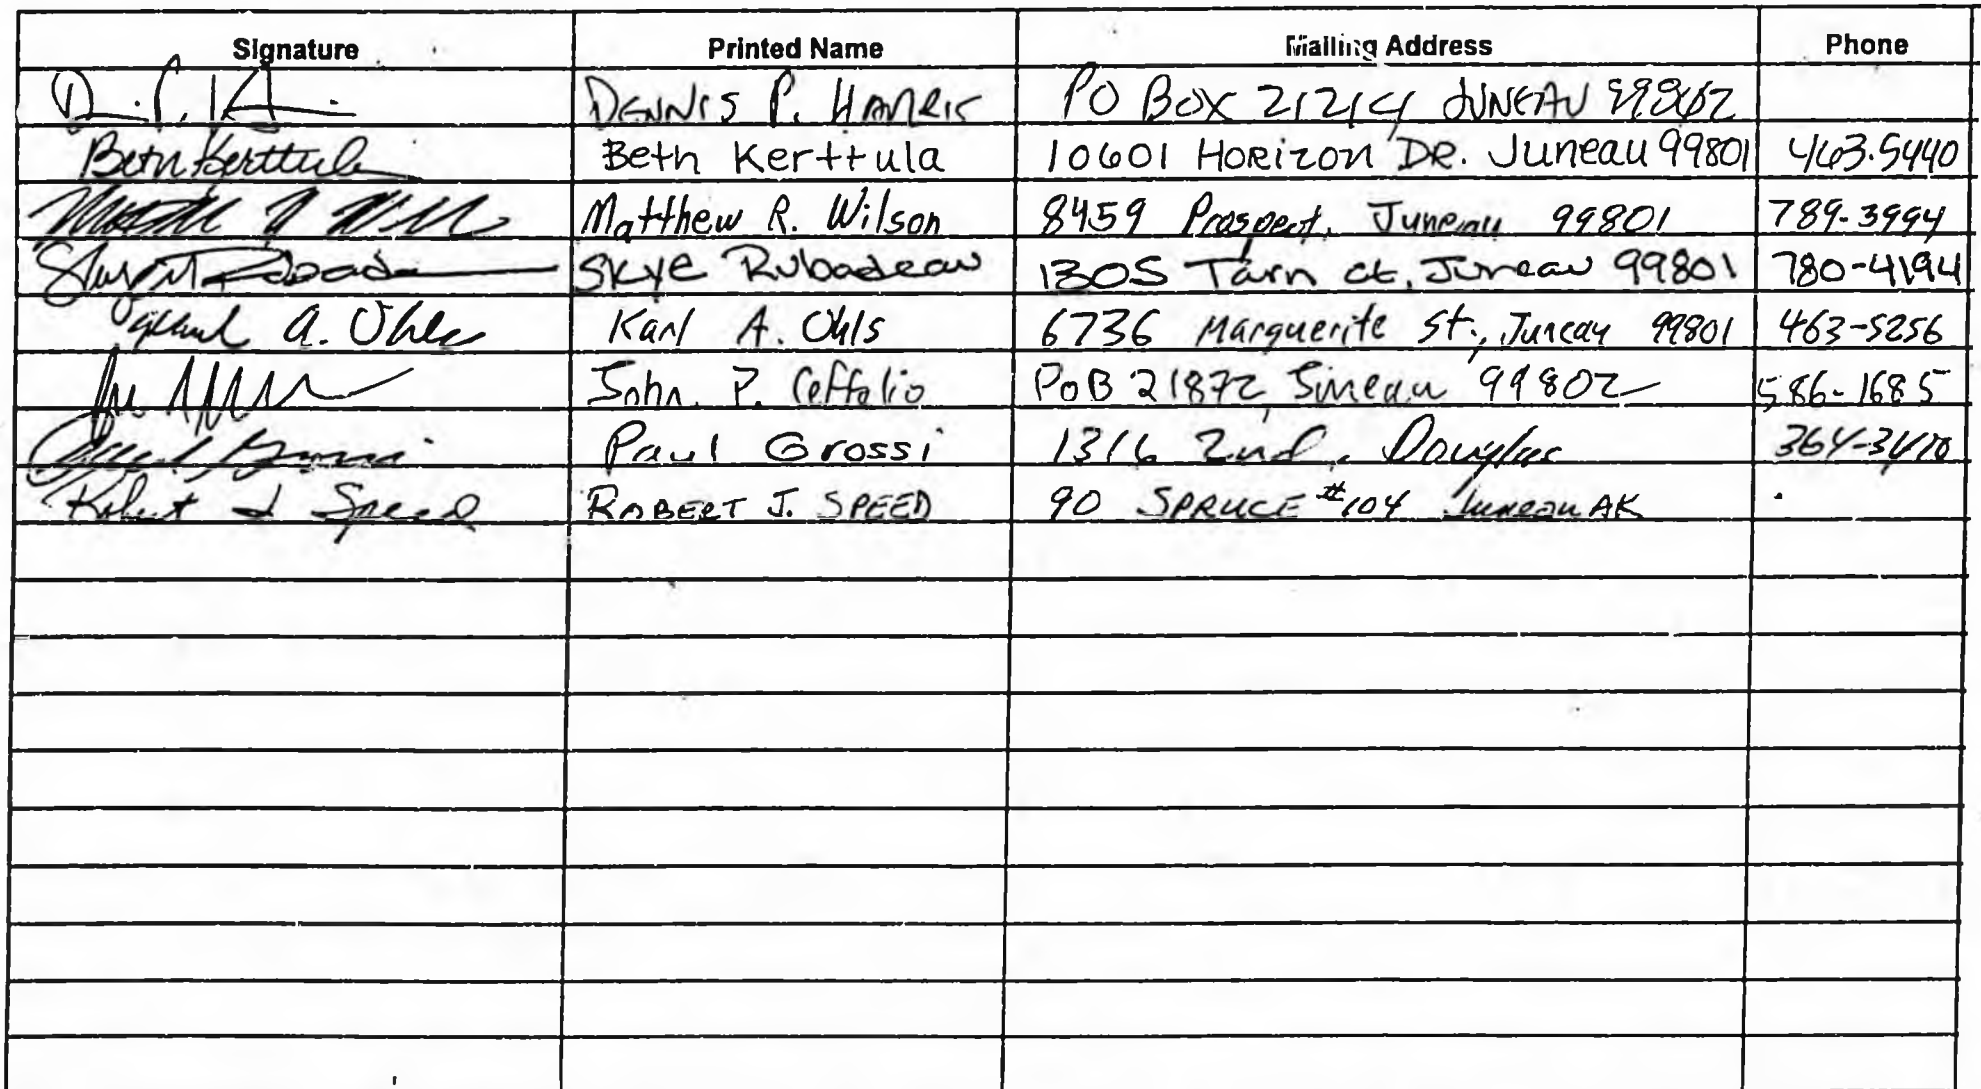 Signature Printed Name Mailing Address Phone
DENNIS P. HARRIS PO BOX 21214 JUNEAU 99802
Beth Kerttula Beth Kerttula 10601 HORIZON DR. Juneau 99801 463-5440
Matthew R. Wilson 8459 Prospect, Juneau 99801 789-3994
Skye Rubadeau 1305 Tarn ct, Juneau 99801 780-4194
A. Ohls Karl A. Ohls 6736 Marguerite St., Juneau 99801 463-5256
John P. Ceffalio POB 21872, Juneau 99802 586-1685
Paul Grossi 1316 2nd, Douglas 364-3470
Robert J Speed ROBERT J. SPEED 90 SPRUCE #104 Juneau AK